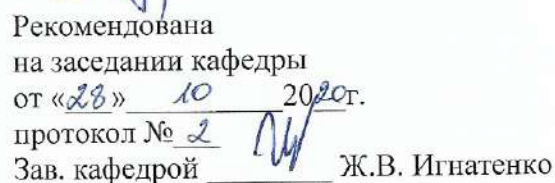 Рекомендована
на заседании кафедры
от «28» 10 2020г.
протокол № 2
Зав. кафедрой ________ Ж.В. Игнатенко